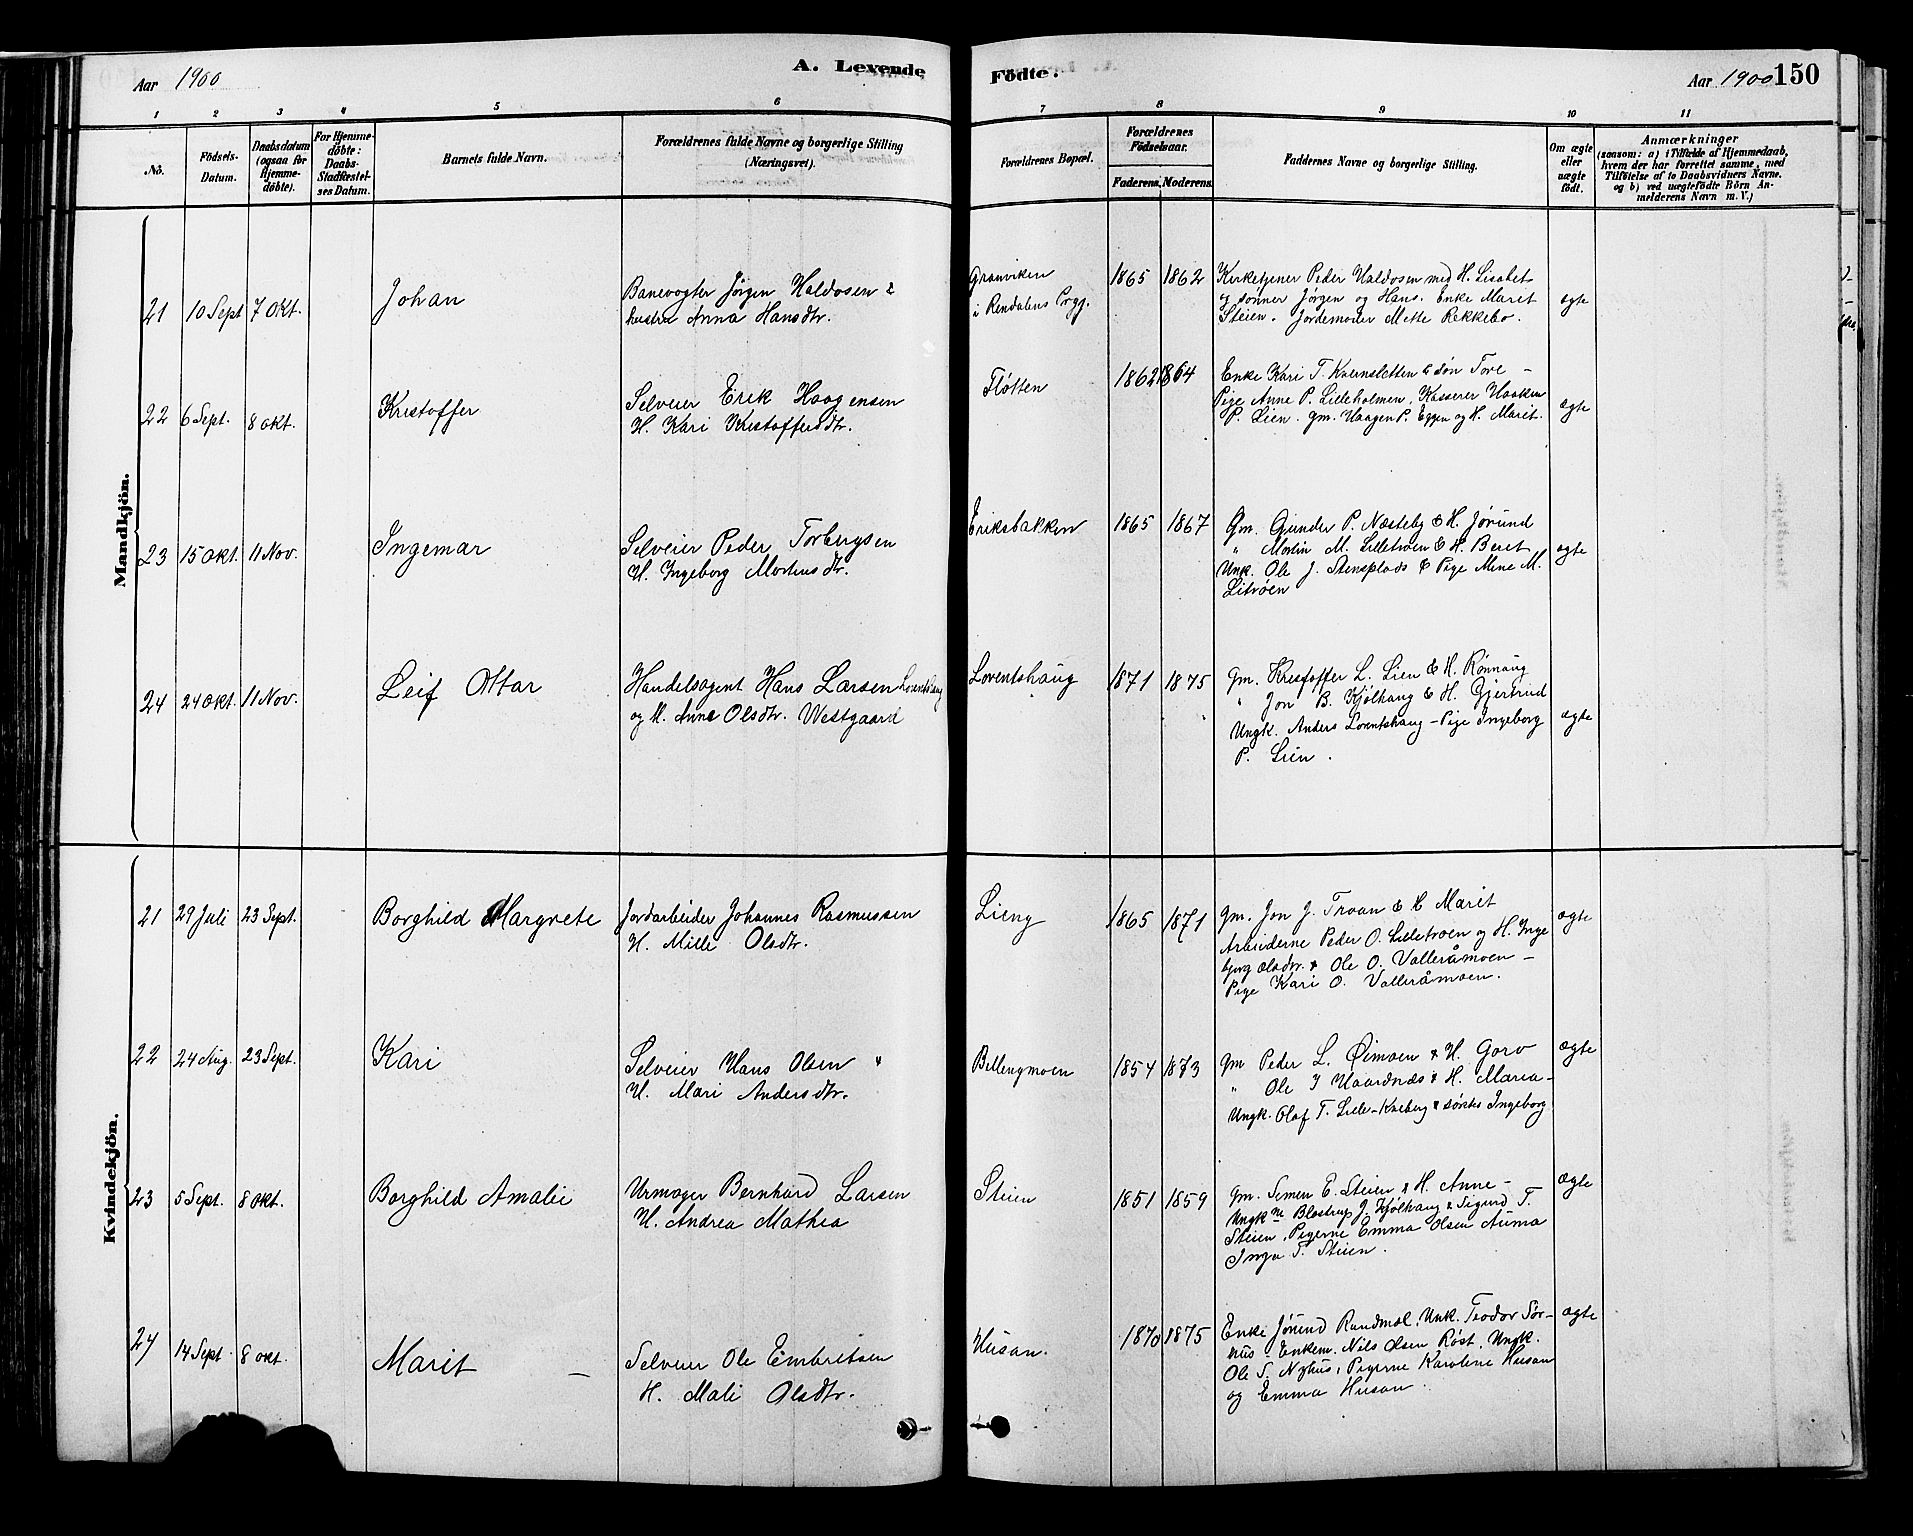 Aar 1900
A. Levende
Födte.
Aar 1900
150
1 2 3 4 5 6 7 8 9 10 11
No.
Födsels-Datum.
Daabsdatum (ogsaa for Hjemme-döbte).
For Hjemme-döbte: Daabs-Stadfæstel-ses Datum.
Barnets fulde Navn.
Forældrenes fulde Navne og borgerlige Stilling
(Næringsvei).
Forældrenes Bopæl.
Forældrenes Födselsaar.
Faderens. Moderens.
Faddernes Navne og borgerlige Stilling.
Om ægte eller uægte födt.
Anmærkninger
(saasom: a) i Tilfælde af Hjemmedaab,
hvem der har forrettet samme, med
Tilföielse af to Daabsvidners Navne,
og b) ved uægtefödte Börn An-
melderens Navn m. V.)
Mandkjön.
21 10 Sept 7 Okt. Johan
Banevogter Jörgen Haldosen &
hustru Anna Hansdtr.
Granviken
i Rendalens Prgj.
1865 1862
Kirketjener Peder Haldosen med H. Lisabet
og sönner Jörgen og Hans. Enke Marit
Steien. Jordemoder Mette Rekkebo.
ægte
22 6 Sept. 8 Okt. Kristoffer
Selveier Erik Haagensen
H. Kari Kristoffersdtr.
Fløtten
1862 1864
Enke Kari T. Kvernsletten & sön Tore -
Pige Anne P. Lilleholmen, Kasserer Haaken
P. Lien. Gm. Haagen P. Eggen og H. Marit.
ægte
23 15 Okt. 11 Nov. Ingemar
Selveier Peder Torbergsen
H. Ingeborg Mortensdtr.
Eriksbakken
1865 1867
Gm. Gunder P. Næsteby & H. Jørund
" Mortin M. Lilletrøen & H. Beret
Ungk. Ole J. Stensplads & Pige Mine M.
Litrøen
ægte
24 24 Okt. 11 Nov. Leif Ottar
Handelsagent Hans Larsen Lorentshaug
og H. Anne Olsdtr. Westgaard
Lorentshaug
1871 1875
Gm. Kristoffer L. Lien & H. Rønnaug
" Jon B. Kjølhaug & H. Gjertrud
Ungk. Anders Lorentshaug - Pige Ingeborg
P. Lien.
ægte
Kvindekjön.
21 29 Juli 23 Sept. Borghild Margrete
Jordarbeider Johannes Rasmussen
H. Milli Olsdtr.
Lieng
1865 1871
Gm. Jon J. Troan & H Marit
Arbeiderne Peder O. Lilletroen og H. Inge
bjørg Olsdtr. & Ole O. Valleråmoen -
Pige Kari O. Valleråmoen.
ægte
22 24 Aug. 23 Sept. Kari
Selveier Hans Olsen "
H. Mari Andersdtr.
Bellengmoen
1854 1873
Gm Peder L. Øimoen & H. Goro
" Ole J Haardnæs & H. Maria -
Ungk. Olaf T. Lille-Kneberg & søster Ingeborg
ægte
23 5 Sept. 8 Okt. Borghild Amalie
Urmager Bernhard Larsen
H. Andrea Mathea
Steien
1851 1859
Gm. Simen E. Steien & H. Anne -
Ungkne Blostrup J. Kjølhaug & Sigurd T.
Steien, Pigerne Emma Olsen Auma
Inga T. Steien.
ægte
24 14 Sept 8 Okt. Marit
Selveier Ole Embretsen
H. Mali Olsdtr.
Husan.
1870 1875
Enke Jørund Randmæl, Unk. Teodor Sør-
hus - Enkem. Nils Olsen Røst, Ungk.
Ole S. Nyhus, Pigerne Karoline Husan
og Emma Husan.
ægte